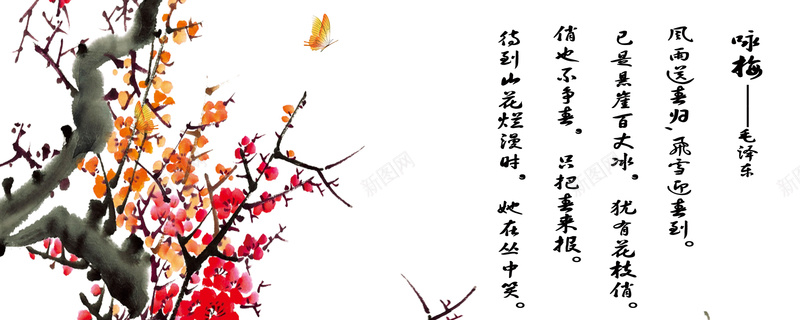 咏梅——毛泽东
风雨送春归、飞雪迎春到。
已是悬崖百丈冰。犹有花枝俏。
俏也不争春。只把春来报。
待到山花烂漫时。她在丛中笑。
新图网
新图网
新图网